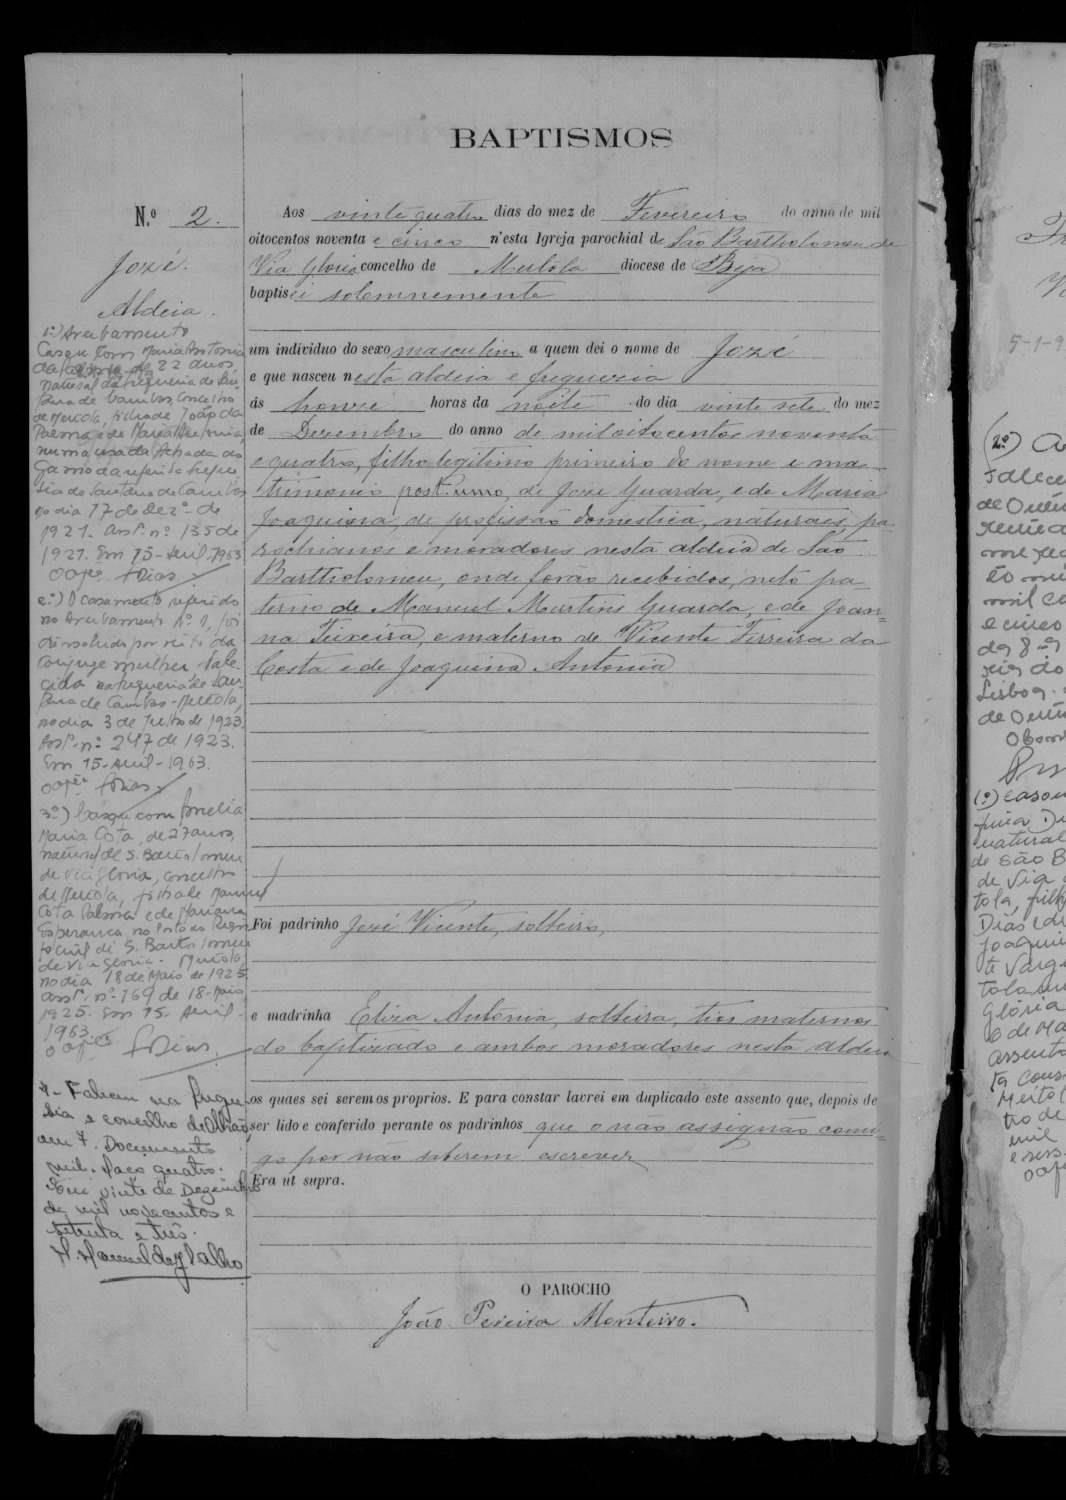 BAPTISMOS
N.º 2.
Jozé.
Aldeia.
Aos vinte quatro dias do mez de Fevereiro do anno de mil
oitocentos noventa e cinco n'esta Igreja parochial de São Bartholomeu de
Via Gloria concelho de Mertola diocese de Beja
baptisei solemnemente
um individuo do sexo masculino a quem dei o nome de Jozé
e que nasceu nesta aldeia e freguezia
ás honze horas da noite do dia vinte sete do mez
de Dezembro do anno de mil oitocentos noventa
e quatro, filho legitimo primeiro do nome e ma-
trimonio, de Joze Guarda, e de Maria
Joaquina, de profissão domestica, naturais, pa-
rochianos e moradores nesta aldeia de São
Bartholomeu, onde forão recebidos, neto pa-
terno de Manuel Martins Guarda, e de Joan=
na Teixeira, e materno de Vicente Ferreira da
Costa e de Joaquina Antonia
Foi padrinho José Vicente, solteiro,
e madrinha Eliza Antonia, solteira, tios maternos
do baptizado e ambos moradores nesta aldeia
os quaes sei serem os proprios. E para constar lavrei em duplicado este assento que, depois de
ser lido e conferido perante os padrinhos que o não assignão comi=
go por não saberem escrever
Era ut supra.
O PAROCHO
João Pereira Monteiro.
1º) Averbamento
Casou com Maria Antonia
da de 22 anos,
natural da freguesia de San
tana de Cambas, concelho
de Mertola, filha de João da
Palma e de Maria Antonia,
numa casa da Achada do
Gamo da referida fregue
sia de Santana de Cambas
no dia 17 de Dezº de
1921. Assº nº 135 de
1921. Em 15-Abril-1963
Dias
2º) O casamento referido
no Averbamento nº 1, foi
dissolvido por óbito da
conjuge mulher, fale-
cida na freguesia de San-
tana de Cambas-Mertola,
no dia 3 de Julho de 1923.
Assº nº 247 de 1923.
Em 15-Abril-1963.
Dias
3º) Casou com Amelia
Maria Cota, de 27 anos,
natural de S. Bartolomeu
de Via Gloria, concelho
de Mertola, filha de Manuel
Cota Palma e de Mariana
Esperança no Posto do Regis
to civil de S. Bartolomeu
de Via Gloria-Mertola
no dia 18 de Maio de 1925
Assº nº 169 de 18-Maio
1925. Em 15-Abril-
1963
Dias
4- Faleceu na fregue-
sia e concelho de Olhão,
em 7. Documento
mil. Maço quatro.
Em vinte de Dezembro
de mil novecentos e
setenta e três.
5-1-9
(2º)
falece
de Ouri
mil
e cinco
Lisboa
de Ouri
(1º) Casou
natural
de São B
de Via
tola, filh
Dias e de
Joaquin
Glória
6 de Ma
assento
tro de
mil